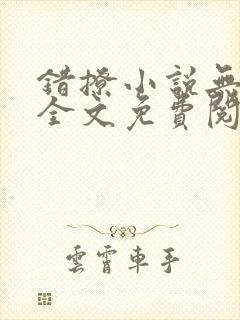 錯撩小說無
全文免費閱
雲霄車手